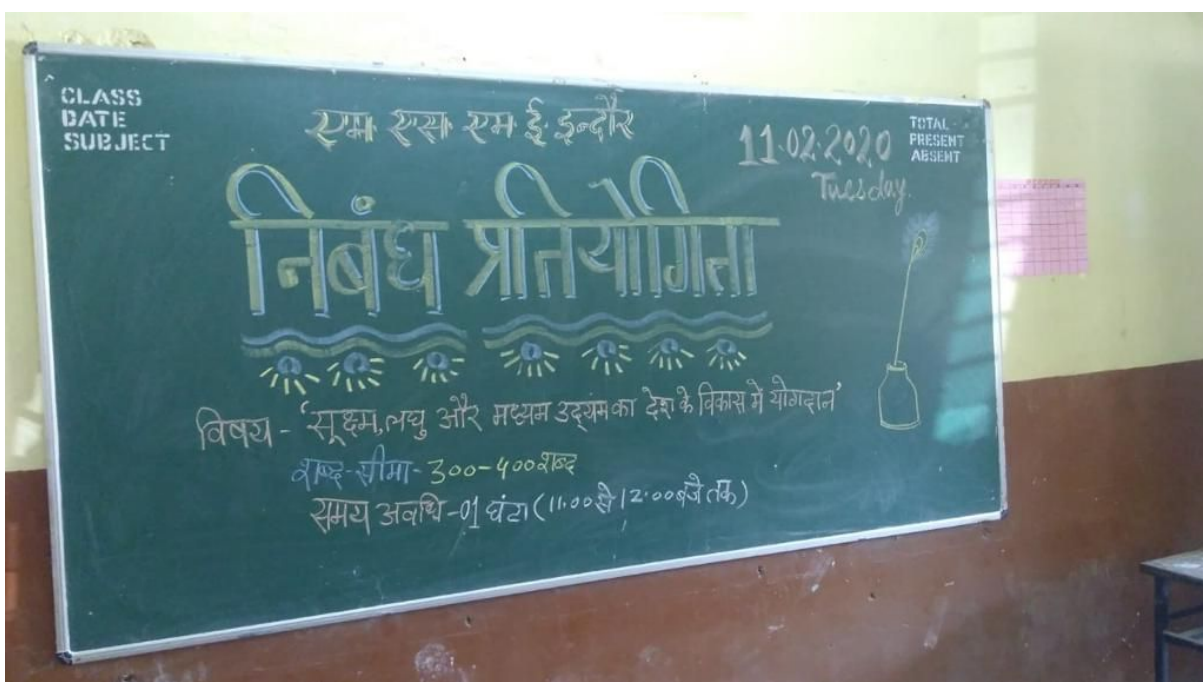 CLASS
DATE
SUBJECT
एम एस एम ई इन्दौर
11.02.2020
Tuesday.
TOTAL
PRESENT
ABSENT
निबंध प्रतियोगिता
विषय - 'सूक्ष्म, लघु और मध्यम उद्यम का देश के विकास में योगदान'
शब्द-सीमा - 300-400 शब्द
समय अवधि - 01 घंटा (11.00 से 12.00 बजे तक)